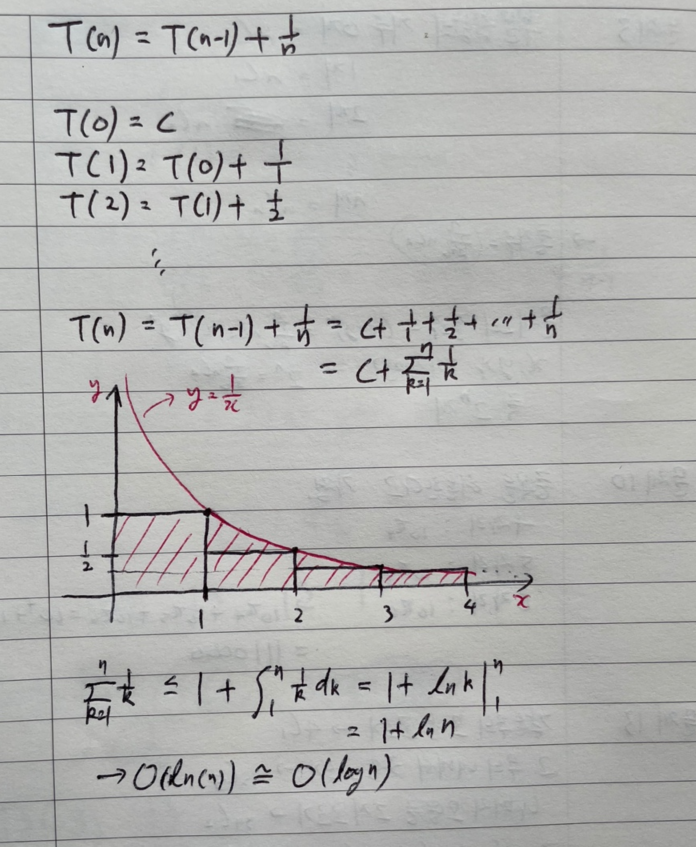 T(n) = T(n-1) + 1/n
T(0) = C
T(1) = T(0) + 1/1
T(2) = T(1) + 1/2
⋮
T(n) = T(n-1) + 1/n = C + 1/1 + 1/2 + ... + 1/n
= C + ∑_{k=1}^{n} 1/k
y → y = 1/x
1
1/2
1 2 3 4 x
∑_{k=1}^{n} 1/k ≤ 1 + ∫_1^n 1/k dk = 1 + ln k |_1^n
= 1 + ln n
→ O(ln(n)) ≅ O(log n)